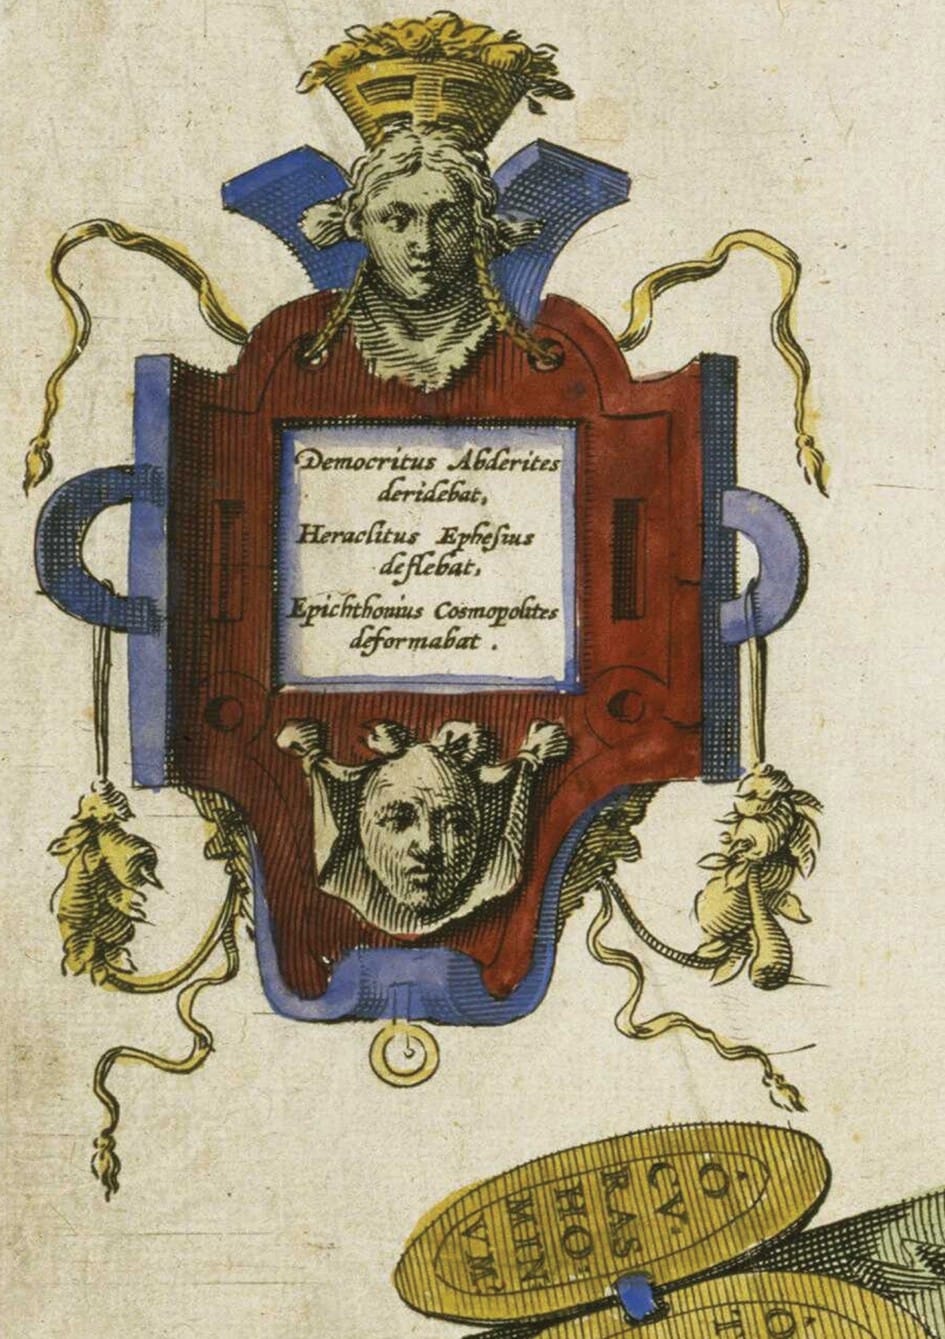 Democritus Abderites
deridebat,
Heraclitus Ephesius
deflebat,
Epichthonius Cosmopolites
deformabat .
O
CV.
RAS
HO.
MIN
VM.
O